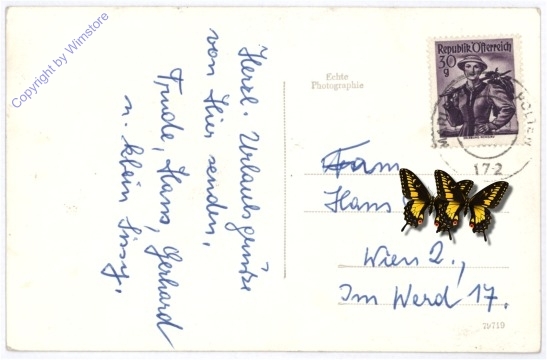 Copyright by Wimstore
Herzl. Urlaubsgrüsse
von Hier senden,
Trude, Hans, Gerhard
u. klein Sissy.
Echte
Photographie
Republik Österreich
30
g
PÖLTEN
17-2
Fam
Hans
Wien 2.,
Im Werd 17.
79/719